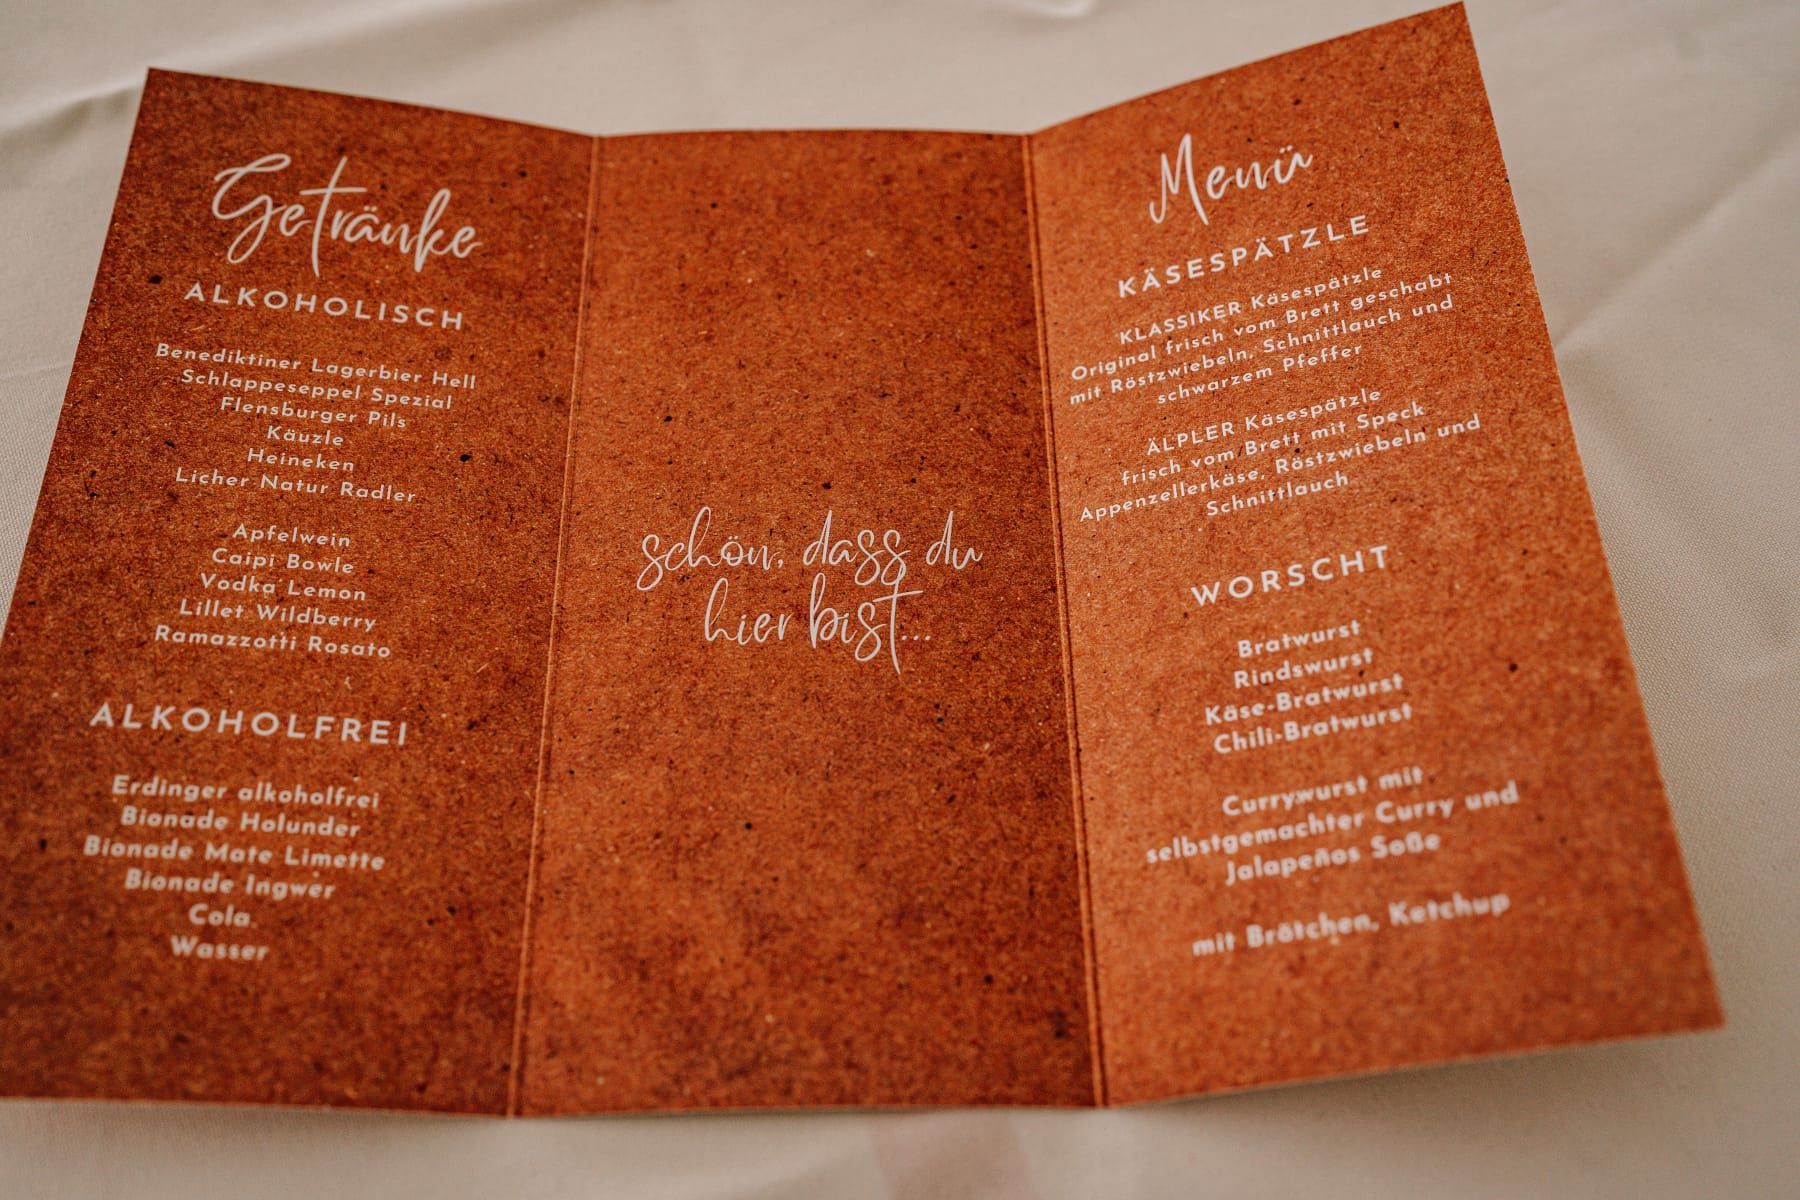 Getränke
ALKOHOLISCH
Benediktiner Lagerbier Hell
Schlappeseppel Spezial
Flensburger Pils
Käuzle
Heineken
Licher Natur Radler
Apfelwein
Caipi Bowle
Vodka Lemon
Lillet Wildberry
Ramazzotti Rosato
ALKOHOLFREI
Erdinger alkoholfrei
Bionade Holunder
Bionade Mate Limette
Bionade Ingwer
Cola
Wasser
schön, dass du
hier bist...
Menü
KÄSESPÄTZLE
KLASSIKER Käsespätzle
Original frisch vom Brett geschabt
mit Röstzwiebeln, Schnittlauch und
schwarzem Pfeffer
ÄLPLER Käsespätzle
frisch vom Brett mit Speck
Appenzellerkäse, Röstzwiebeln und
Schnittlauch
WORSCHT
Bratwurst
Rindswurst
Käse-Bratwurst
Chili-Bratwurst
Currywurst mit
selbstgemachter Curry und
Jalapeños Soße
mit Brötchen, Ketchup